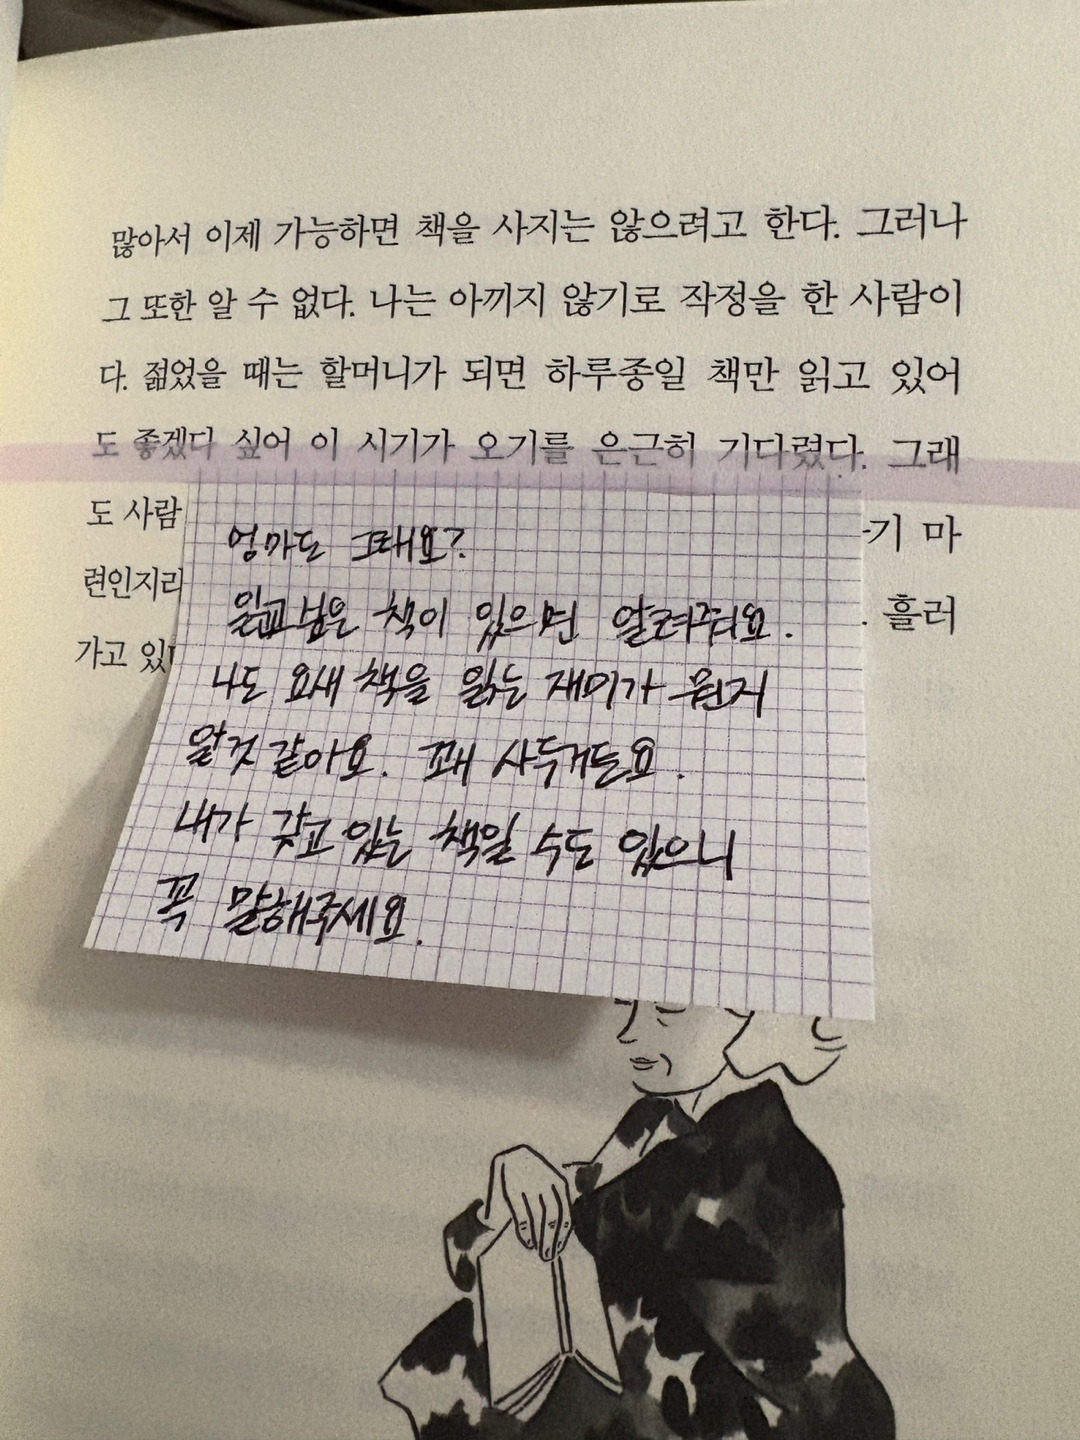 많아서 이제 가능하면 책을 사지는 않으려고 한다. 그러나
그 또한 알 수 없다. 나는 아끼지 않기로 작정을 한 사람이
다. 젊었을 때는 할머니가 되면 하루종일 책만 읽고 있어
도 좋겠다 싶어 이 시기가 오기를 은근히 기다렸다. 그래
도 사람
기 마
련인지라
. 흘러
가고 있
엄마도 그래요?
읽고싶은 책이 있으면 알려줘요.
나도 요새 책을 읽는 재미가 뭔지
알것 같아요. 꽤 사두거든요.
내가 갖고 있는 책일 수도 있으니
꼭 말해주세요.